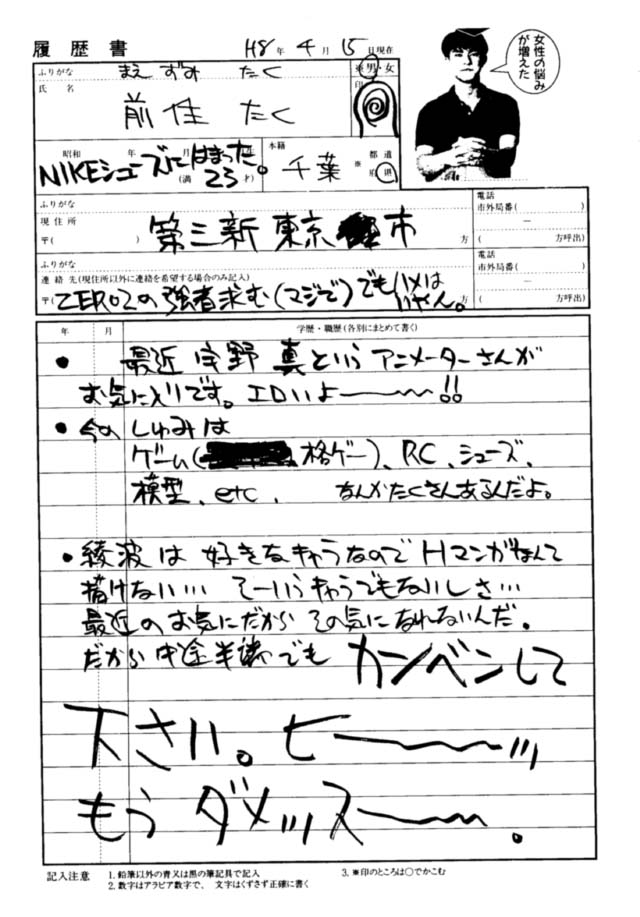 履歴書
H8年4月15日現在
女性の悩み
が増えた
ふりがな まえずみ たく
※男・女
氏名 前住 たく
印
昭和 年 月
NIKEシューズにはまった。
(満 23 才)
本籍 千葉 ※ 都道府県
ふりがな
現住所 第三新東京市
〒( ) 方
電話
市外局番( )
―
( 方呼出)
ふりがな
連絡先(現住所以外に連絡を希望する場合のみ記入)
〒( ZERO2の強者求む(マジで)でもハメはいやん。
電話
市外局番( )
―
( 方呼出)
年 月 学歴・職歴(各別にまとめて書く)
● 最近宇野真というアニメーターさんが
お気に入りです。エロいよ〜!!
● 今のしゅみは
ゲーム( 格ゲー)、RC、シューズ、
模型、etc、 なんかたくさんあるんだよ。
● 綾波は好きなキャラなのでHマンガなんて
描けない… そーいうキャラでもないしさ…
最近のお気にだからその気になれないんだ。
だから中途半端でも カンベンして
下さい。ヒーーッ
もうダメッスー。
記入注意 1.鉛筆以外の青又は黒の筆記具で記入 3.※印のところは○でかこむ
2.数字はアラビア数字で、文字はくずさず正確に書く